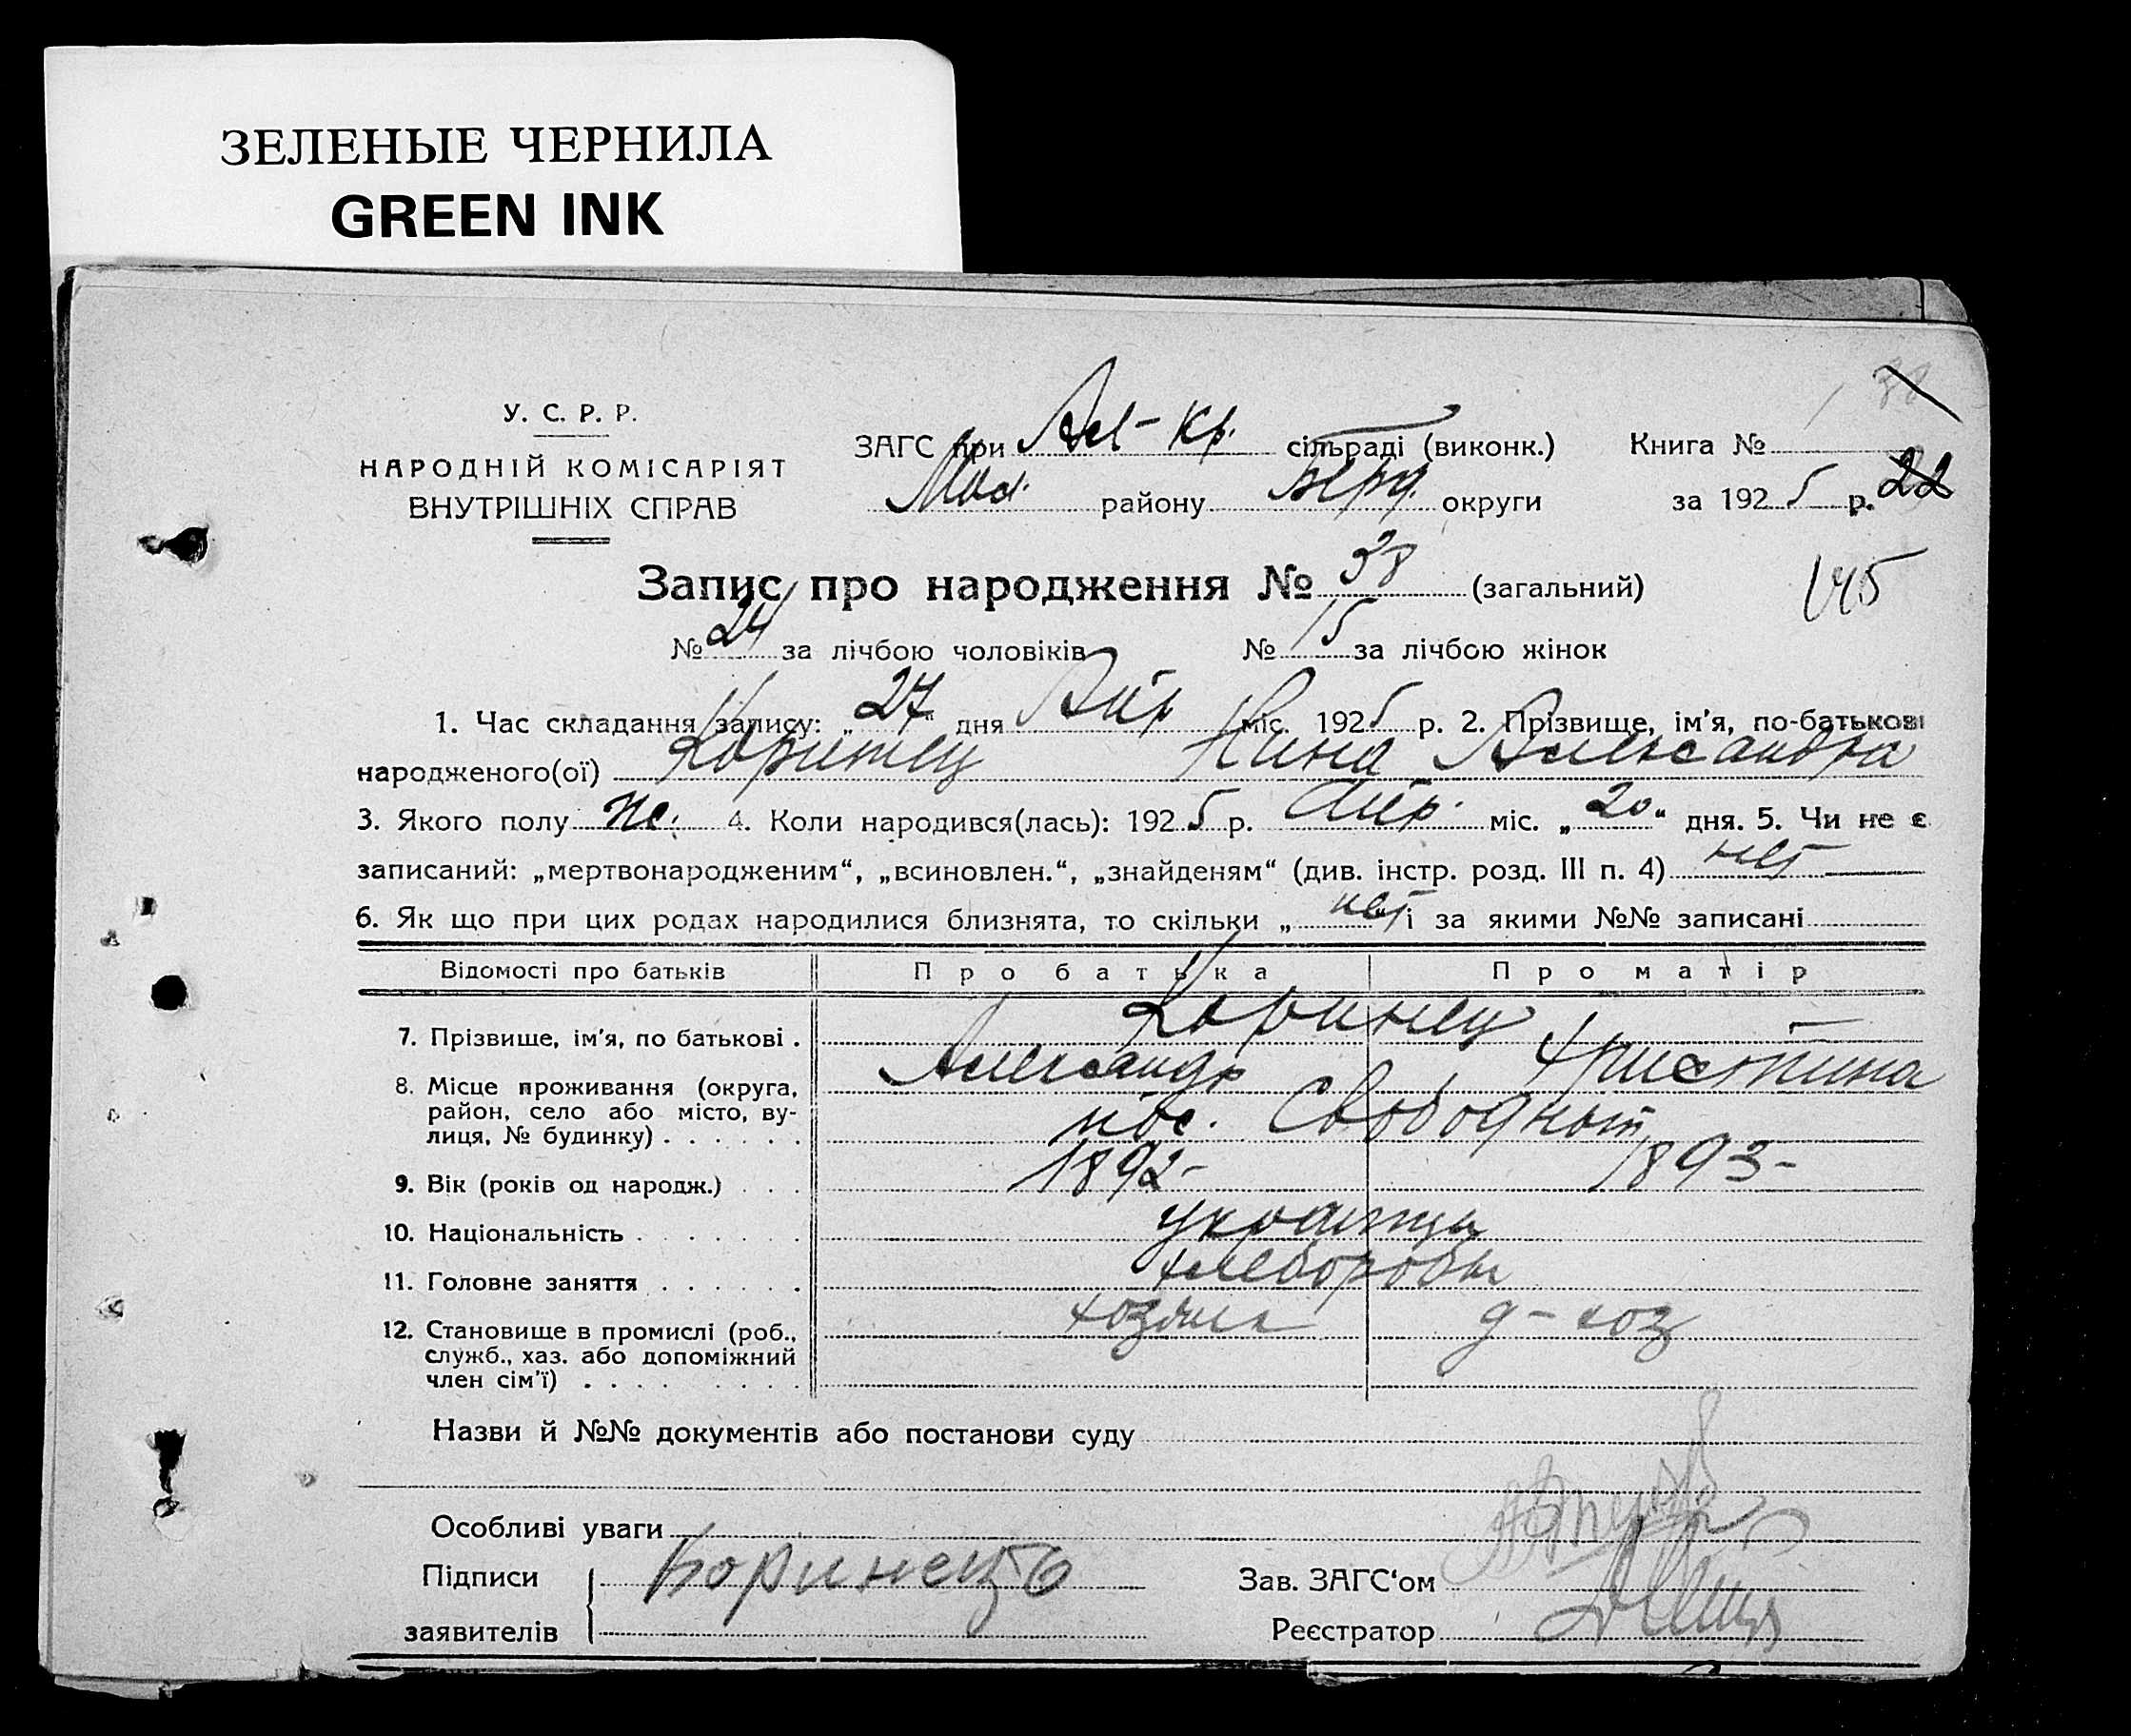 ЗЕЛЕНЫЕ ЧЕРНИЛА
GREEN INK
У. С. Р. Р.
НАРОДНІЙ КОМІСАРІЯТ
ВНУТРІШНІХ СПРАВ
38
ЗАГС при Ал-Кр. сільраді (виконк.) Книга №
района Берд. округи за 1925 р. 22
Запис про народження № 38 (загальний)
145
№ 24 за лічбою чоловіків № 15 за лічбою жінок
1. Час складання запису: „27“ дня Апр міс. 1925 р. 2. Прізвище, ім'я, по-батькові
народженого(ої) Коринец Нина Александра
3. Якого полу же. 4. Коли народився(лась): 1925 р. Апр. міс. „20“ дня. 5. Чи не є
записаний: „мертвонародженим“, „всиновлен.“, „знайденям“ (див. інстр. розд. III п. 4) нет
6. Як що при цих родах народилися близнята, то скільки „нет“ і за якими №№ записані
Відомості про батьків Про батька Про матір
7. Прізвище, ім'я, по батькові . Коринец
Александр Христина
8. Місце проживання (округа,
район, село або місто, ву-
лиця, № будинку) . . . . . . пос. Свободный
9. Вік (років од народж.) . . . 1892- 1893-
10. Національність . . . . . . украинцы
11. Головне заняття . . . . . . хлеборобы
12. Становище в промислі (роб.,
служб., хаз. або допоміжний
член сім'ї) . . . . . . . хозяин д-хоз
Назви й №№ документів або постанови суду
Особливі уваги
Підписи Коринецъ
Зав. ЗАГС'ом
заявителів
Реєстратор